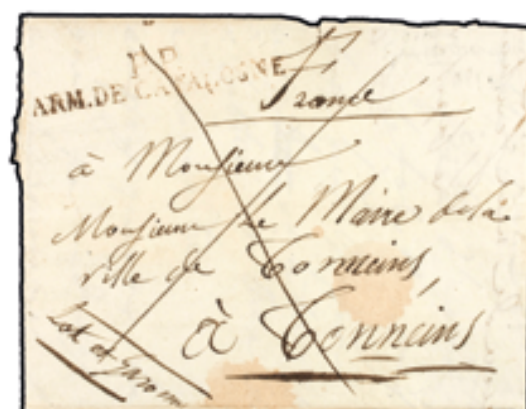 P.P.
ARM. DE CATALOGNE
France
à Monsieur
Monsieur le Maire de la
ville de Tonneins
à Tonneins
Lot et Garonne